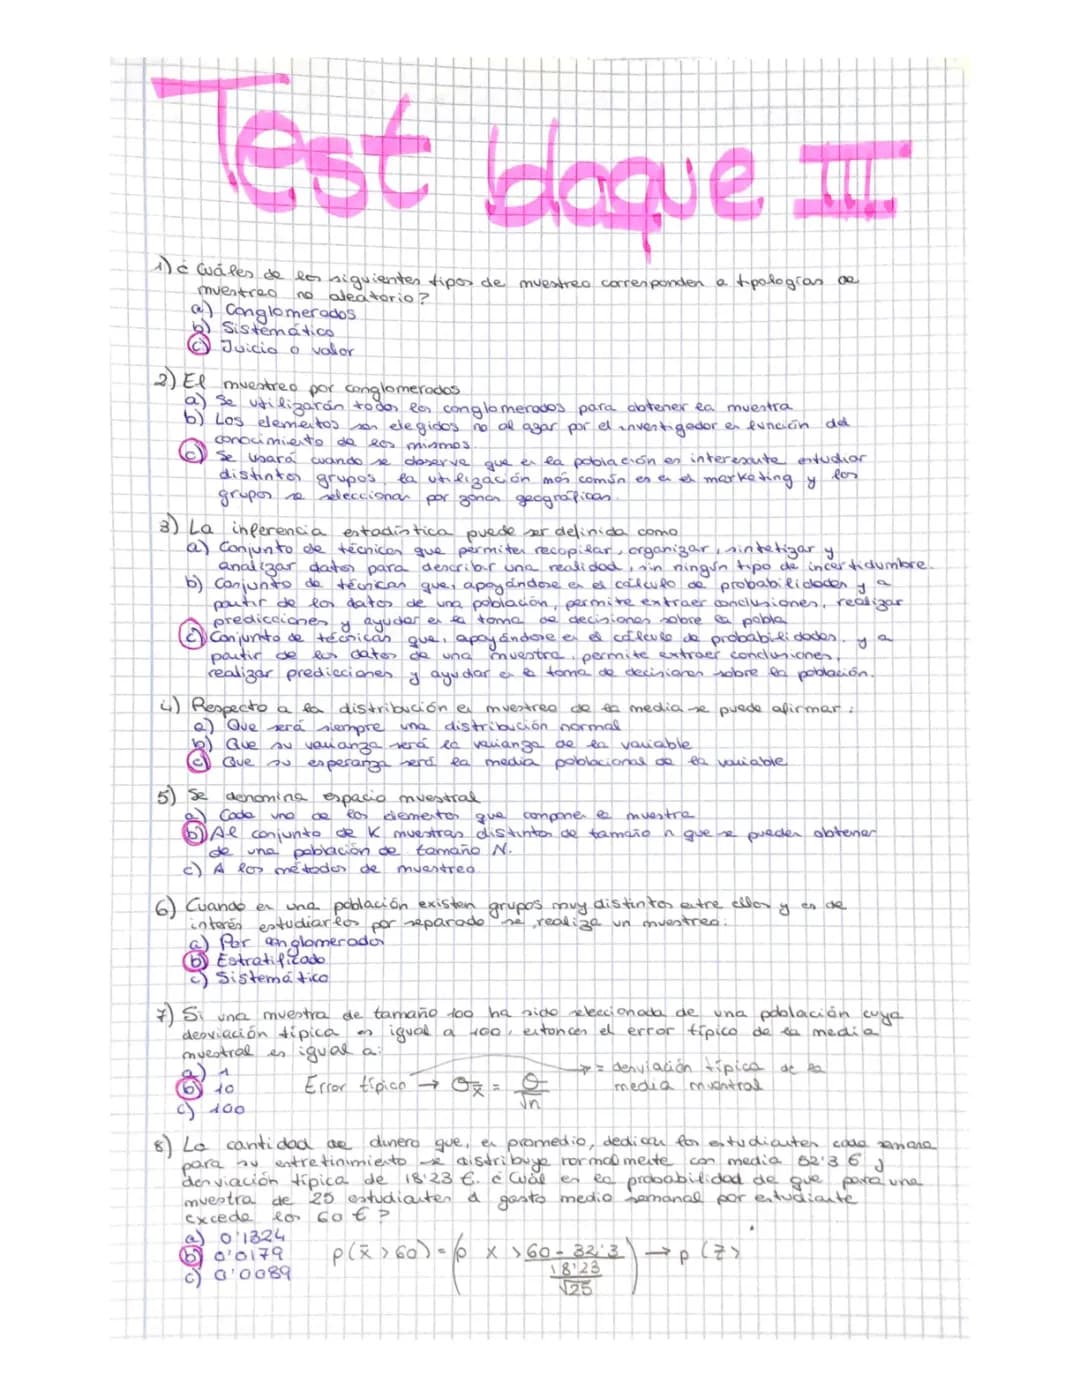 Test bloque III
1) ¿ Cuáles de los siguientes tipos de muestreo corresponden a tipologías de
muestreo no aleatorio?
a) Conglomerados
b) Sistemático
c) Juicio o valor
2) El muestreo por conglomerados
a) Se utilizarán todos los conglomerados para obtener la muestra
b) Los elementos son elegidos no al azar por el investigador en función del
conocimiento de los mismos.
c) Se usará cuando se observe que en la población es interesante estudiar
distintos grupos, la utilización más común es en el marketing y los
grupos se seleccionan por zonas geográficas.
3) La inferencia estadística puede ser definida como
a) Conjunto de técnicas que permiten recopilar, organizar, sintetizar y
analizar datos para describir una realidad, sin ningún tipo de incertidumbre.
b) Conjunto de técnicas que, apoyándose en el cálculo de probabilidades y a
partir de los datos de una población, permite extraer conclusiones, realizar
predicciones y ayudar en la toma de decisiones sobre la pobla
c) Conjunto de técnicas que, apoyándose en el cálculo de probabilidades, y a
partir de los datos de una muestra, permite extraer conclusiones,
realizar predicciones y ayudar en la toma de decisiones sobre la población.
4) Respecto a la distribución en muestreo de la media se puede afirmar:
a) Que será siempre una distribución normal
b) Que su varianza será la varianza de la variable
c) Que su esperanza será la media poblacional de la variable
5) Se denomina espacio muestral
a) Cada uno de los elementos que componen la muestra
b) Al conjunto de K muestras distintas de tamaño n que se pueden obtener
de una población de tamaño N.
c) A los métodos de muestreo
6) Cuando en una población existen grupos muy distintos entre ellos y es de
interés estudiarlos por separado se realiza un muestreo:
a) Por conglomerados
b) Estratificado
c) Sistemático
7) Si una muestra de tamaño 100 ha sido seleccionada de una población cuya
desviación típica es igual a 100, entonces el error típico de la media
muestral es igual a:
a) 1
b) 10 Error típico → σx̄ = σ/√n → = desviación típica de la
media muestral
c) 100
8) La cantidad de dinero que, en promedio, dedican los estudiantes cada semana
para su entretinimiento se distribuye normalmente con media 52'3 € y
desviación típica de 18'23 €. ¿ Cuál es la probabilidad de que para una
muestra de 25 estudiantes el gasto medio semanal por estudiante
excede los 60 € ?
a) 0'1324
b) 0'0179 p(x̄ > 60) = (p x > 60 - 32'3 / 18'23 / √25) → p (z >
c) 0'0089